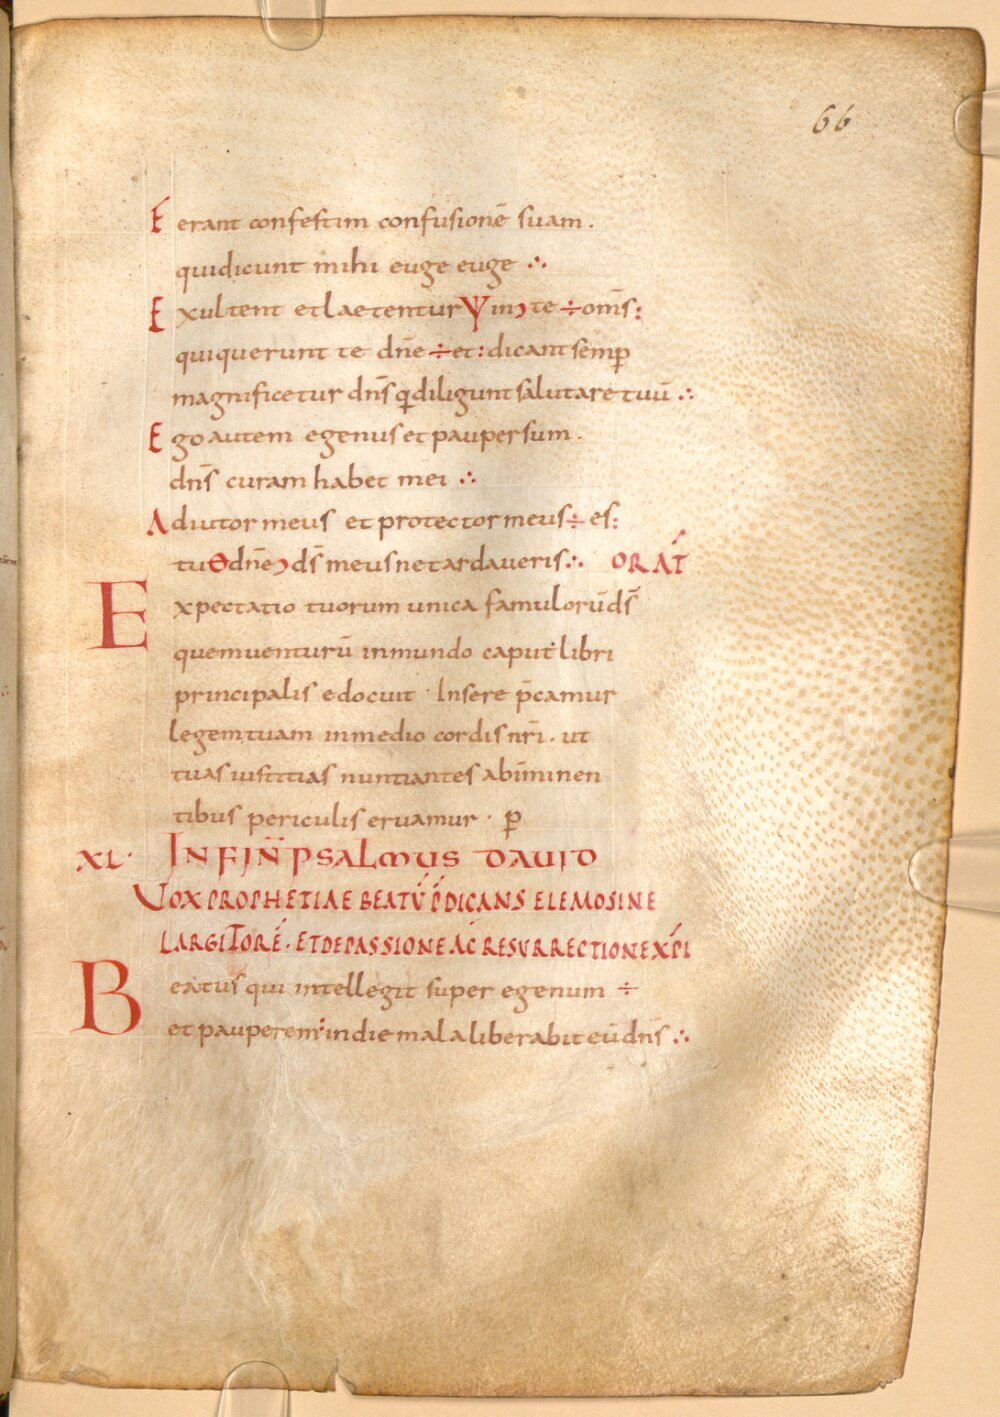 66
Ferant confestim confusionē suam .
quidicunt mihi euge euge ∴
Exultent et laetentur Ψ in te ÷ om̄s:
qui querunt te dn̄e ÷ et: dicant semꝑ
magnificetur dn̄s q̄ diligunt salutare tuū ∴
Ego autem egenus et pauper sum .
dn̄s curam habet mei ∴
Adiutor meus et protector meus ÷ es:
tu Θ dn̄e ds̄ meus ne tardaueris ∴ ORAT̄
Expectatio tuorum unica famulorū ds̄
quem uenturū in mundo caput libri
principalis edocuit · Insere p̄camur
legem tuam in medio cordis nr̄i . ut
tuas iustitias nuntiantes ab im̄inen
tibus periculis eruamur · ꝑ
XL· IN FIN̄ PSALMUS DAUID
VOX PROPHETIAE BEATŪ P̄DICANS ELEMOSINE
LARGITORĒ · ET DE PASSIONE AC RESURRECTIONE XP̄I
Beatus qui intellegit super egenum ÷
et pauperem: in die mala liberabit eū dn̄s ∴